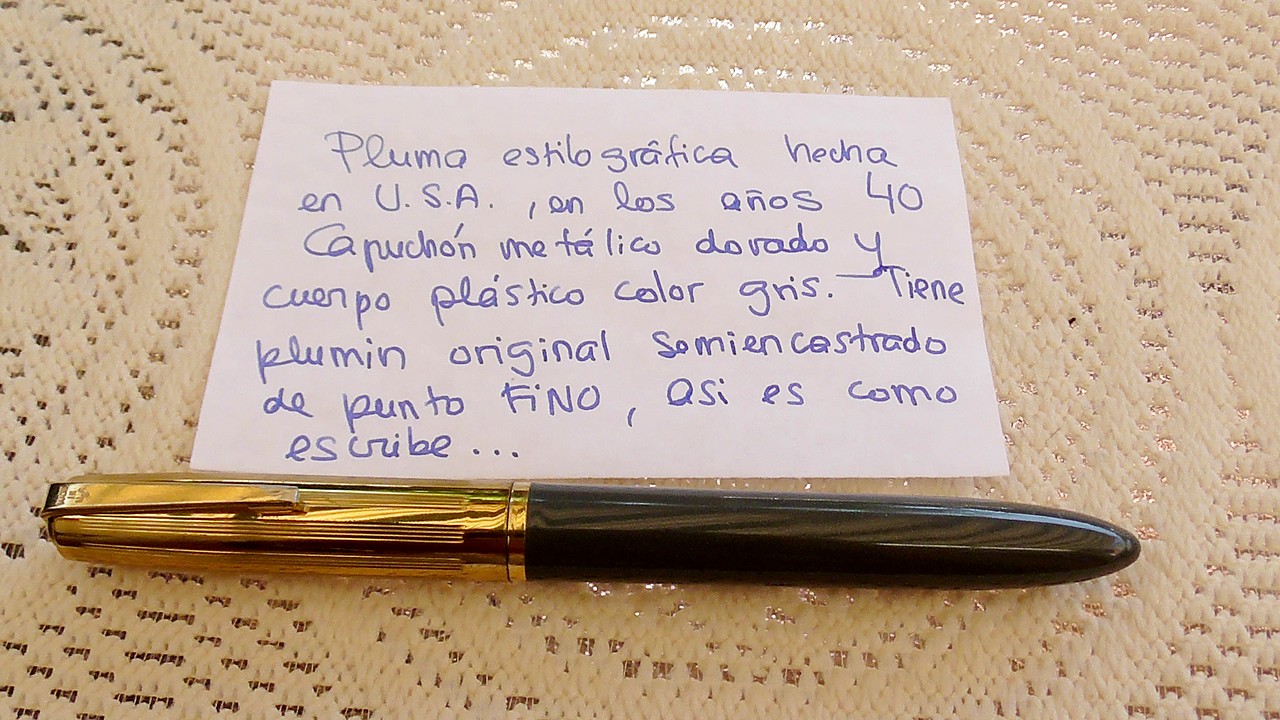 Pluma estilográfica hecha
en U.S.A. , en los años 40
Capuchón metálico dorado y
cuerpo plástico color gris. Tiene
plumin original semiencastrado
de punto FiNO, asi es como
escribe...